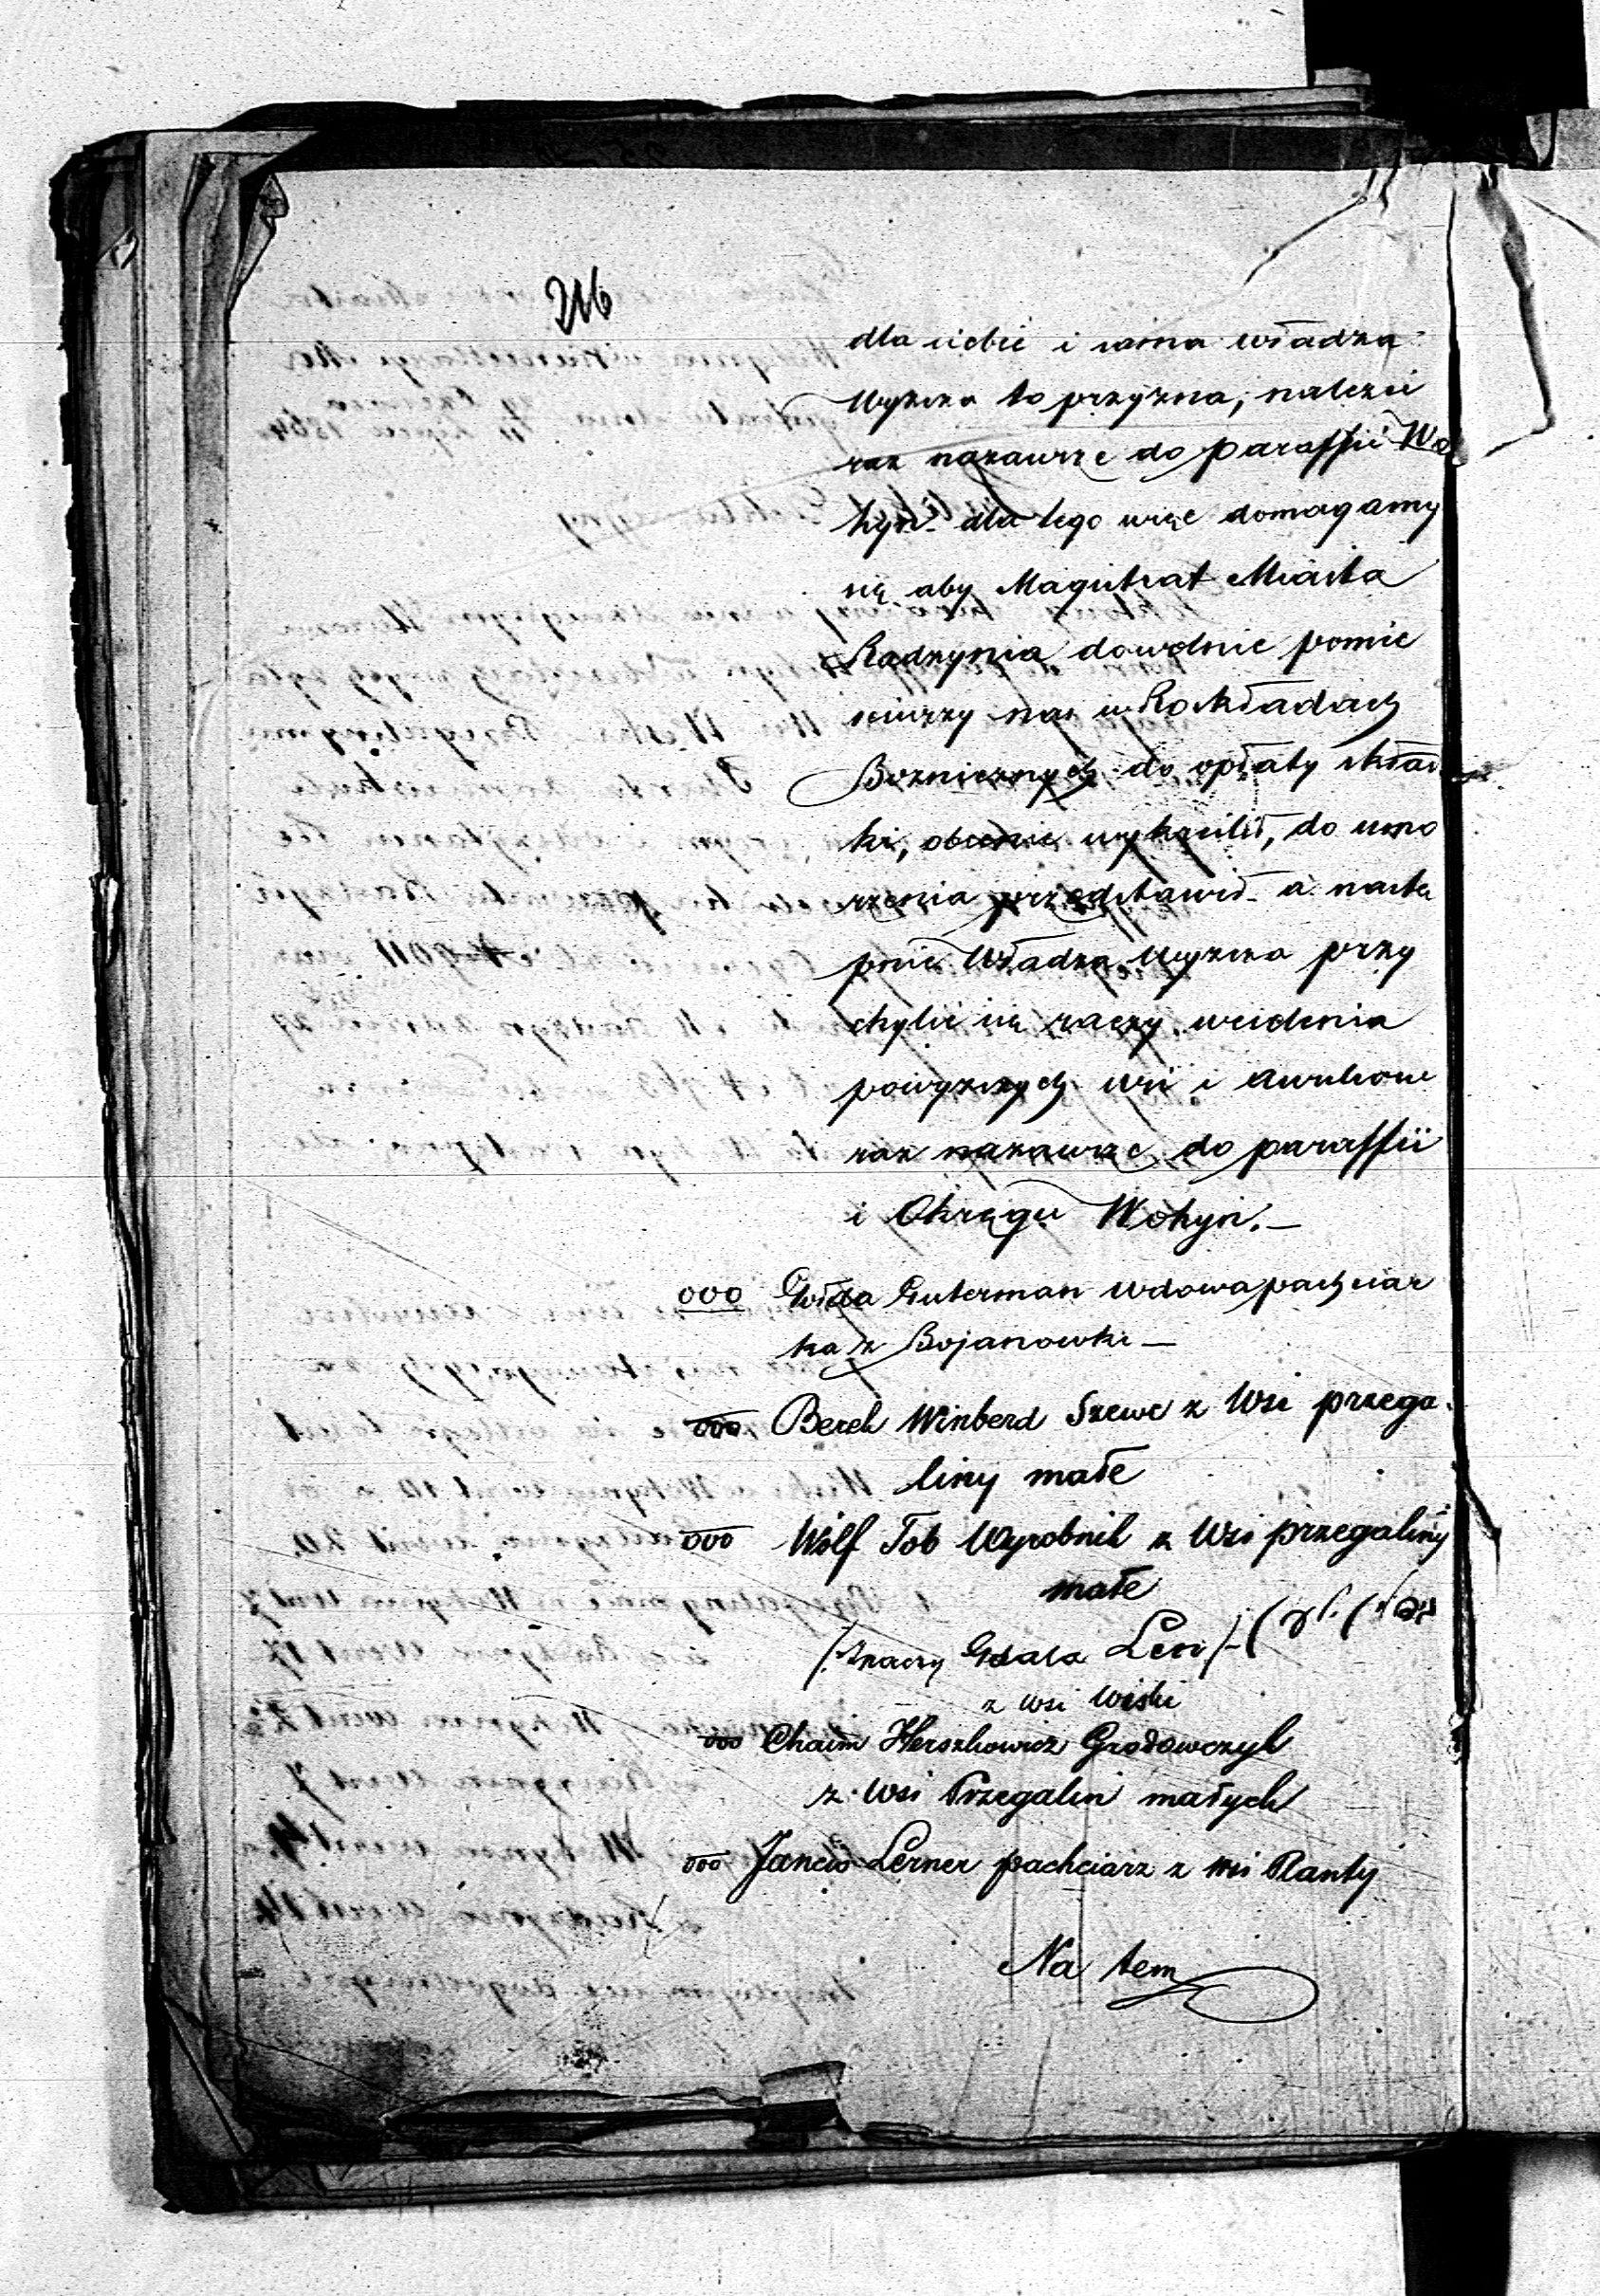 216
dla siebie i sama władza
wyższa to przyzna, należeć
raz nazawsze do paraffii Wo
hyń dla tego więc domagamy
się aby Magistrat Miasta
Radzynia dowolnie pomie
sciwszy nas w Rozkładach
Bożnicznych do opłaty skład
ki, obecnie wykreślił, do umo
rzenia przedstawił a nastę
pnie Władza wyższa przy
chylić się raczy wcielenia
powyższych wsi i Awulsow
raz nazawsze do paraffii
i Okręgu Wohyn. —
ooo Gołda Guterman wdowa pachciar
ka z Bojanowki —
ooo Berek Winberd Szewc z Wsi przega
liny małe
ooo Wolf Tob Wyrobnik z Wsi przegaliny
małe
/: znaczy Gdala Lew /-
z wsi Wiski
ooo Chaim Herszkowicz Grodowczyk
z Wsi Przegalin małych
ooo Jancio Lerner pachciarz z wsi Planty
Na tem